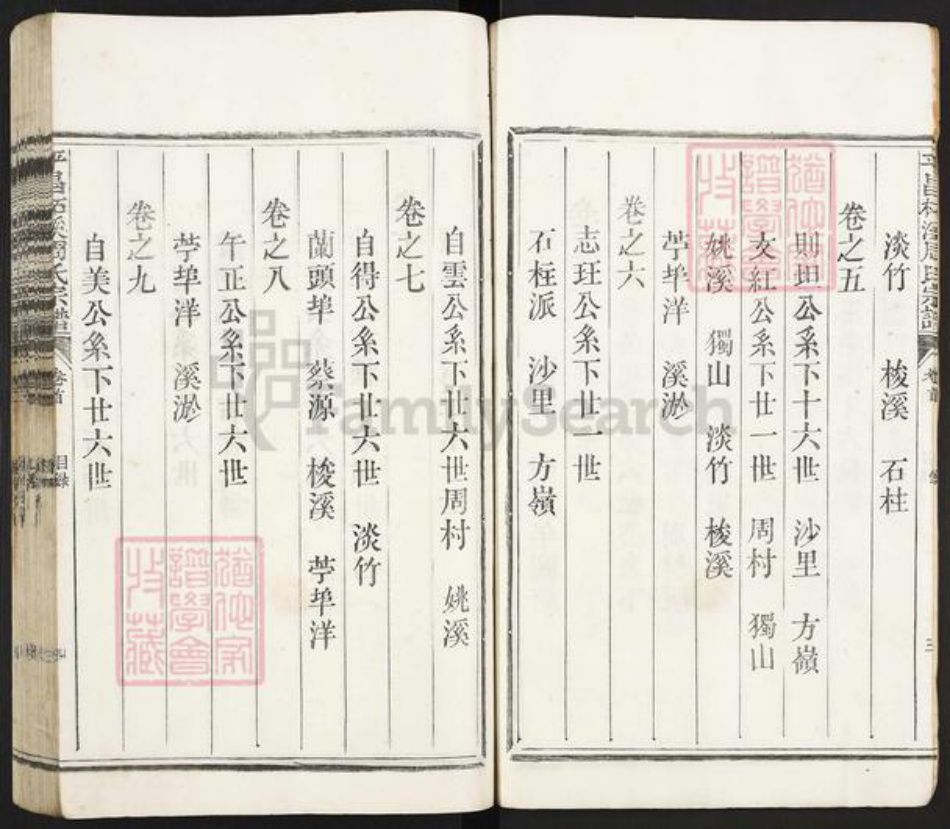 淡竹 梭溪 石柱
卷之五
則坦公系下十六世 沙里 方嶺
文紅公系下廿一世 周村 獨山
姚溪 獨山 淡竹 梭溪
苧埠洋 溪淤
卷之六
志玨公系下廿一世
石柱派 沙里 方嶺
自雲公系下廿六世周村 姚溪
卷之七
自得公系下廿六世 淡竹
蘭頭埠 蔡源 梭溪 苧埠洋
卷之八
午正公系下廿六世
苧埠洋 溪淤
卷之九
自美公系下廿六世
卷首
目錄
FamilySearch
猶他家
譜學會
收藏
猶他家
譜學會
收藏